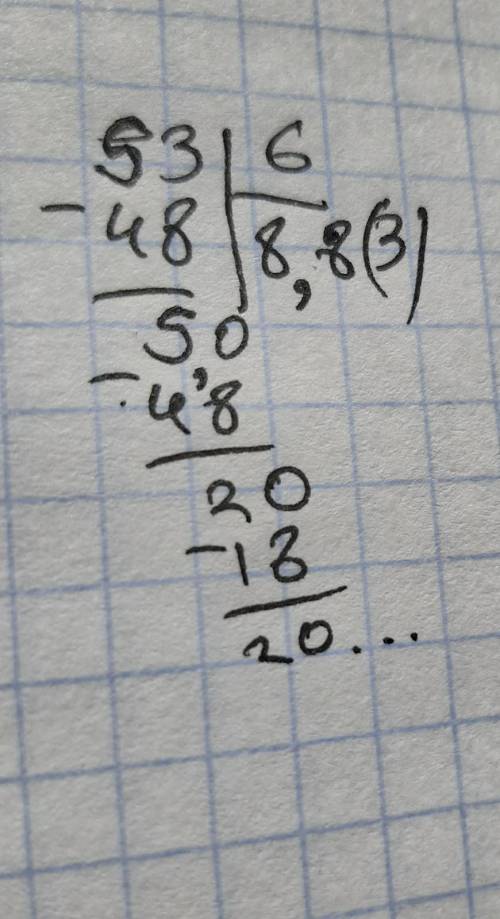 53 6
- 48 8,8(3)
5,0
- 4,8
20
- 18
20...